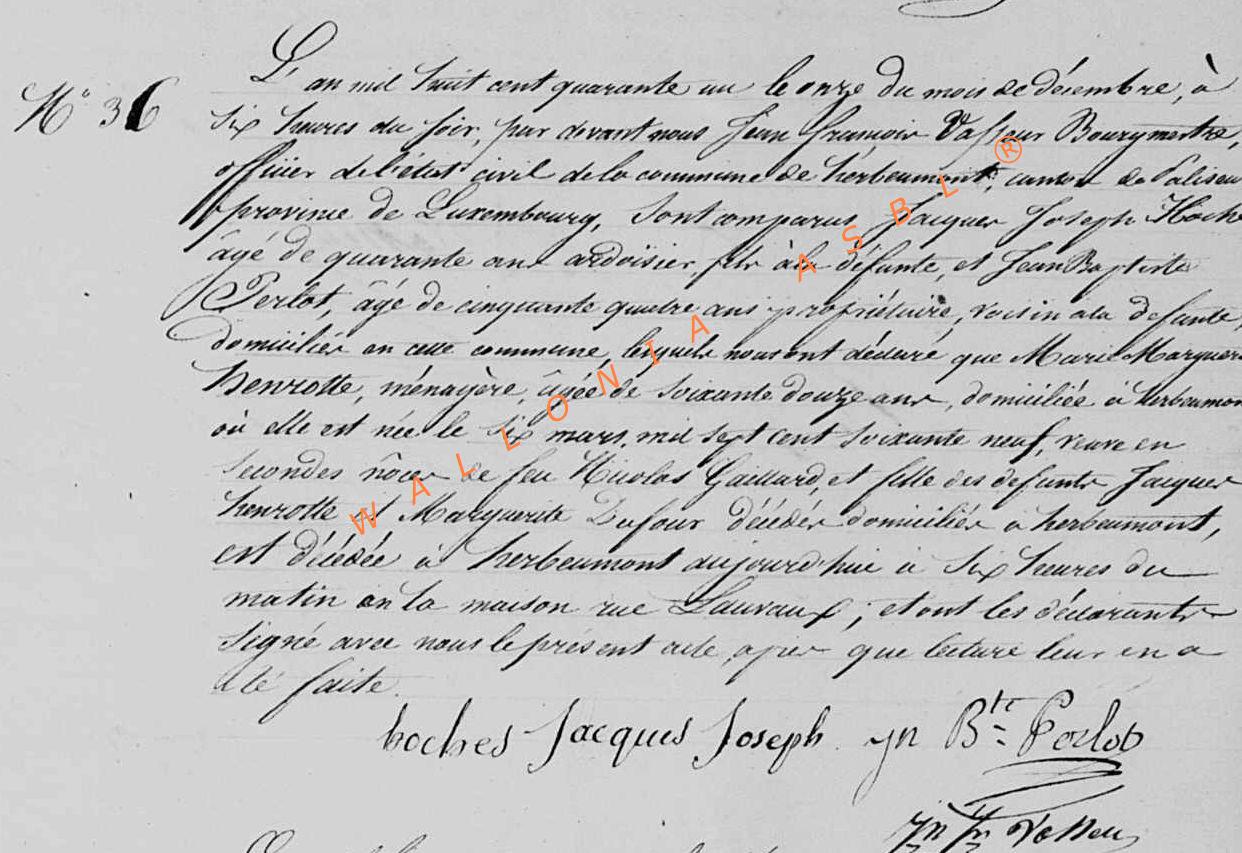 N° 36
L'an mil huit cent quarante un le onze du mois de décembre, à
six heures du soir, par devant nous Jean François Vasseur Bourgmestre,
officier de l'état civil de la commune de herbeumont, canton de Paliseul
province de Luxembourg, sont comparus Jacques Joseph Hoch
âgé de quarante ans ardoisier, fils à la défunte, et Jean Baptiste
Perlot, âgé de cinquante quatre ans propriétaire, voisin a la defunte,
domiciliés en cette commune, lesquels nous ont déclaré que Marie Marguer
henrotte, ménagère, âgée de soixante douze ans, domiciliée à herbeumon
où elle est née le six mars mil sept cent soixante neuf, veuve en
secondes nôces de feu Nicolas Gaillard, et fille des defunts Jacques
henrotte et Marguerite Dufour décédés domiciliés à herbeumont,
est décédée à herbeumont aujourd'hui à six heures du
matin en la maison rue Lauvaux ; et ont les déclarants
signé avec nous le présent acte, après que lecture leur en a
été faite.
hoches Jacques Joseph jn Bte Perlot
WALLONIA ASBL ®